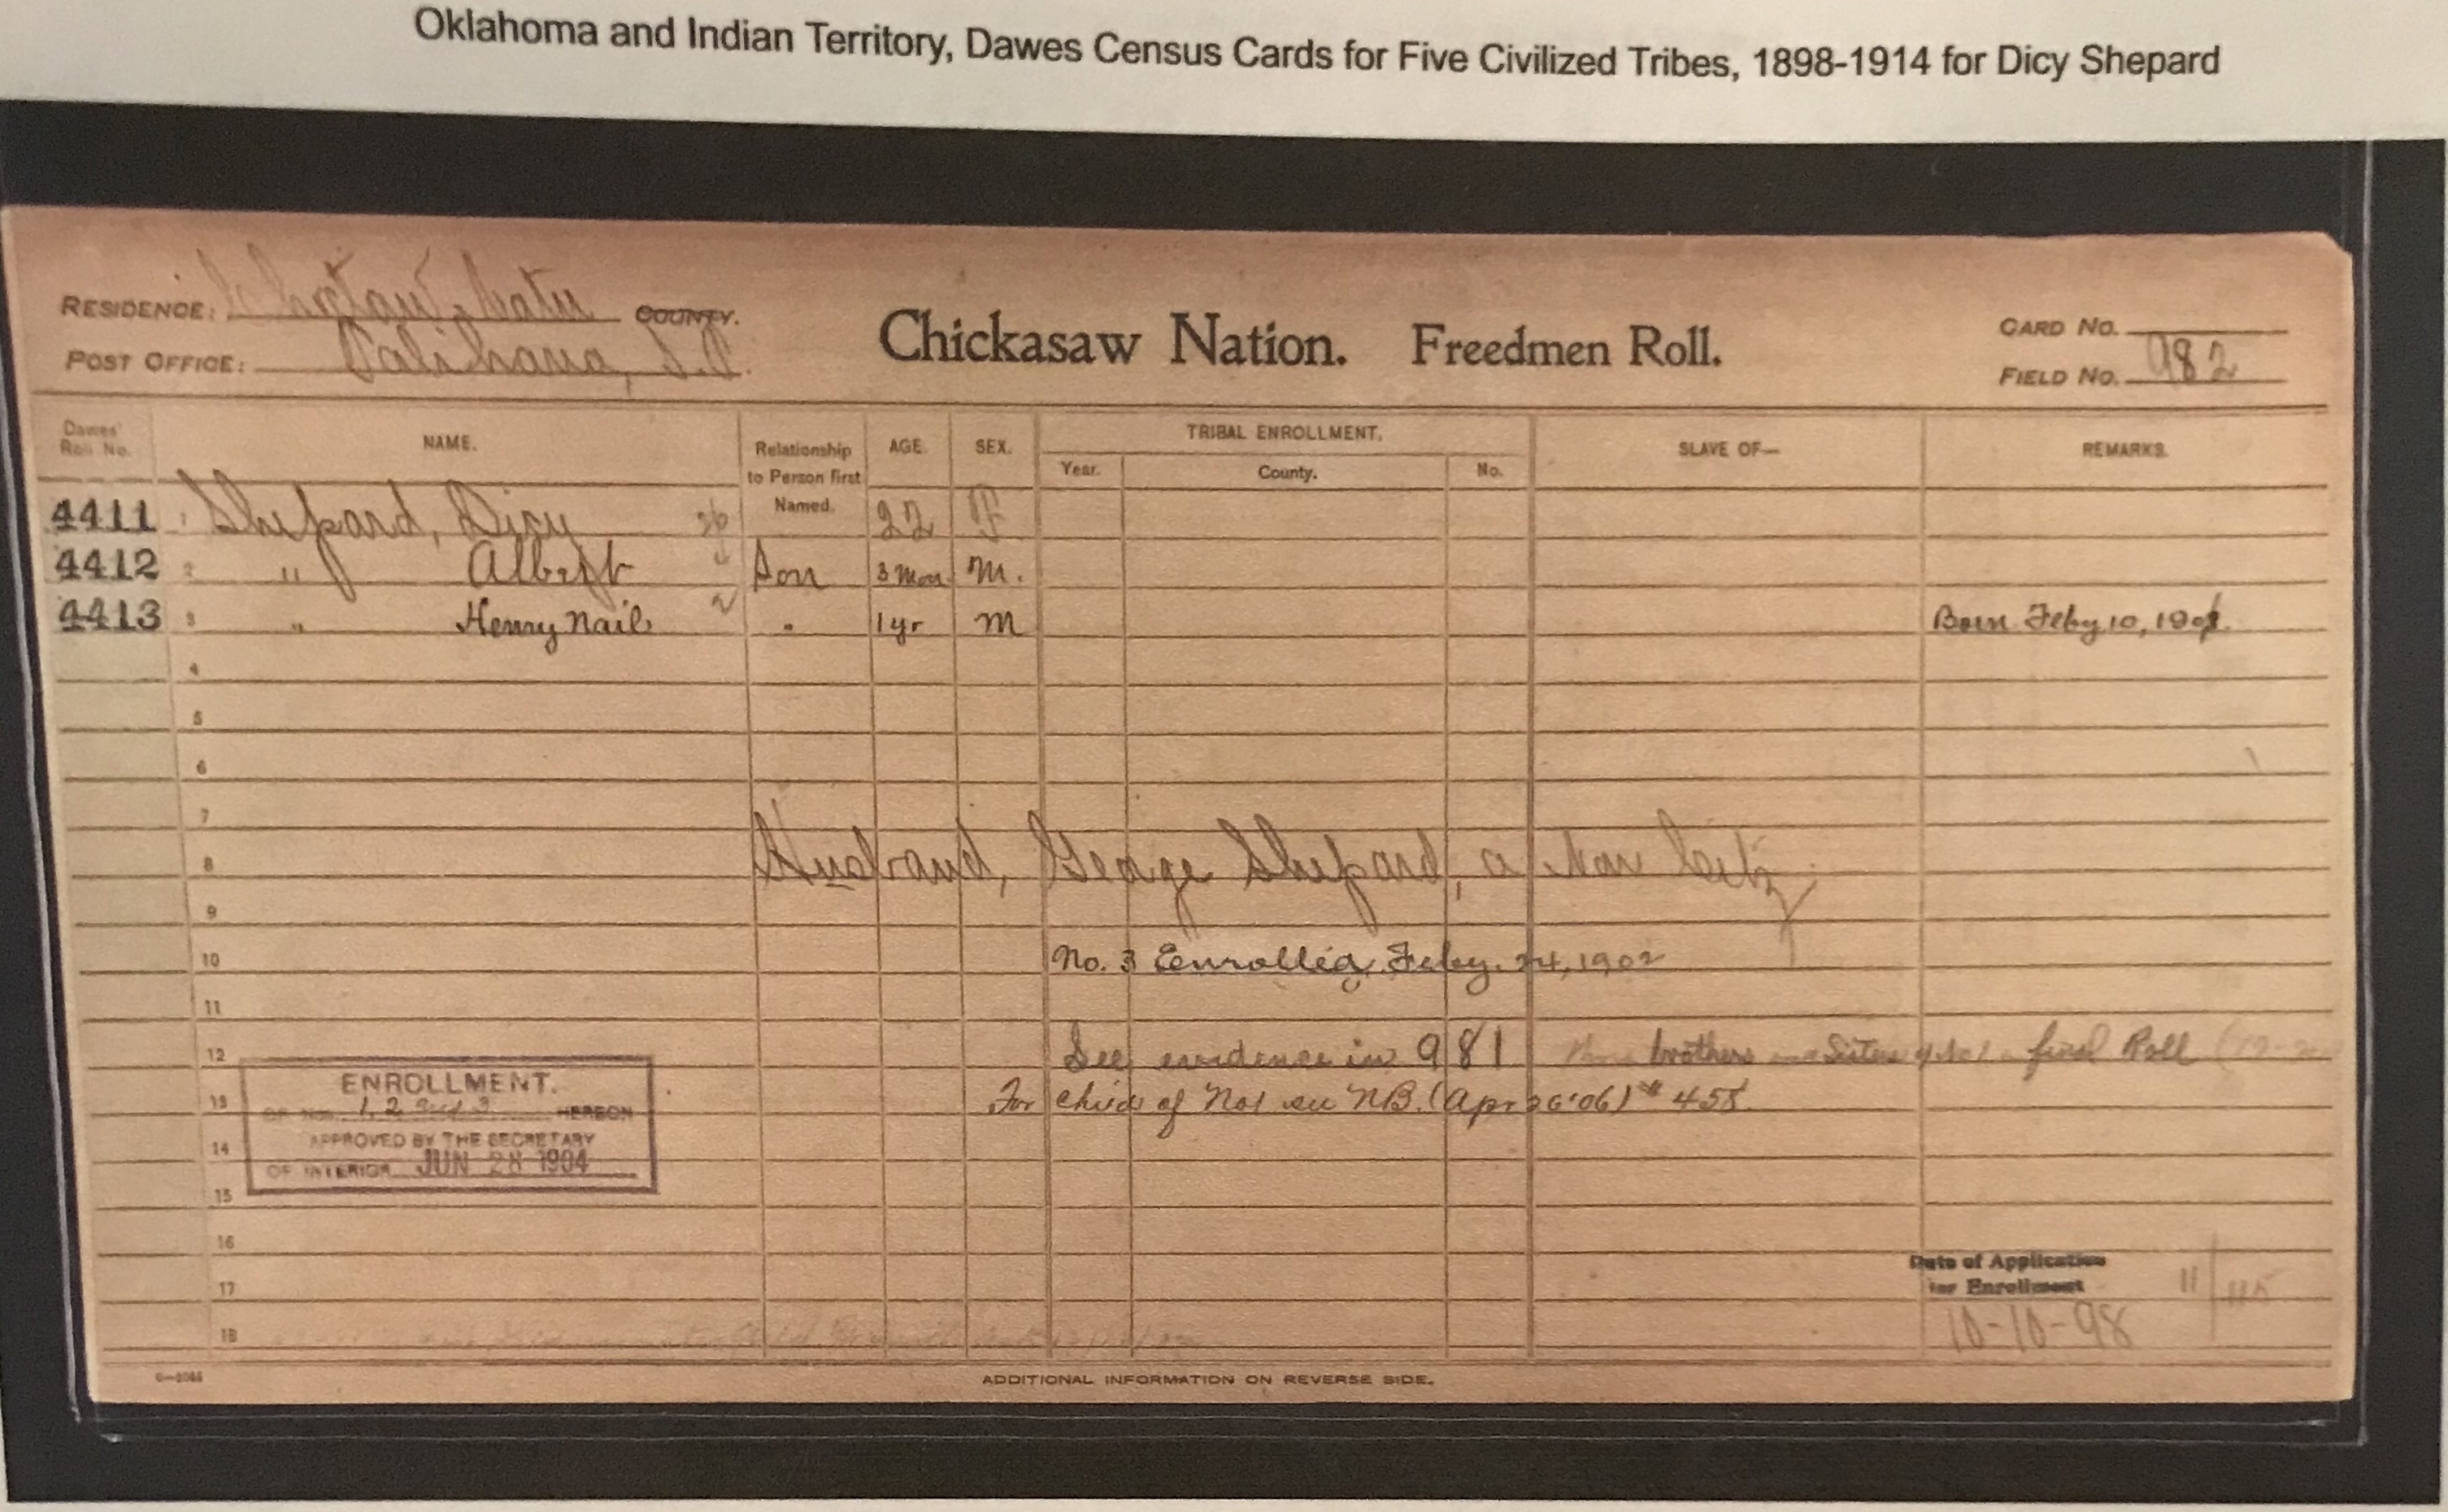 Oklahoma and Indian Territory, Dawes Census Cards for Five Civilized Tribes, 1898-1914 for Dicy Shepard
RESIDENCE: Choctaw Natn COUNTY.
POST OFFICE: Talihana, I.T.
Chickasaw Nation. Freedmen Roll.
CARD NO.
FIELD NO. 982
Dawes' Roll No. NAME. Relationship to Person first Named. AGE. SEX. TRIBAL ENROLLMENT. Year. County. No. SLAVE OF— REMARKS.
4411 1 Shepard, Dicy 26 22 F
4412 2 " Albert Son 3 mon M.
4413 3 " Henry Nail 2 " 1 yr M Born Feby 10, 1901.
4
5
6
7
8 Husband, George Shepard, a Non Citz
9
10 No. 3 Enrolled Feby. 24, 1902
11
12 See evidence in 981 brothers Sister final Roll
13 For child of No1 see NB. (Apr 26'06) # 455
14
15
16
17
18
ENROLLMENT.
OF Nos. 1, 2 and 3 HEREON
APPROVED BY THE SECRETARY
OF INTERIOR JUN 28 1904
Date of Application
for Enrollment
10-10-98
ADDITIONAL INFORMATION ON REVERSE SIDE.